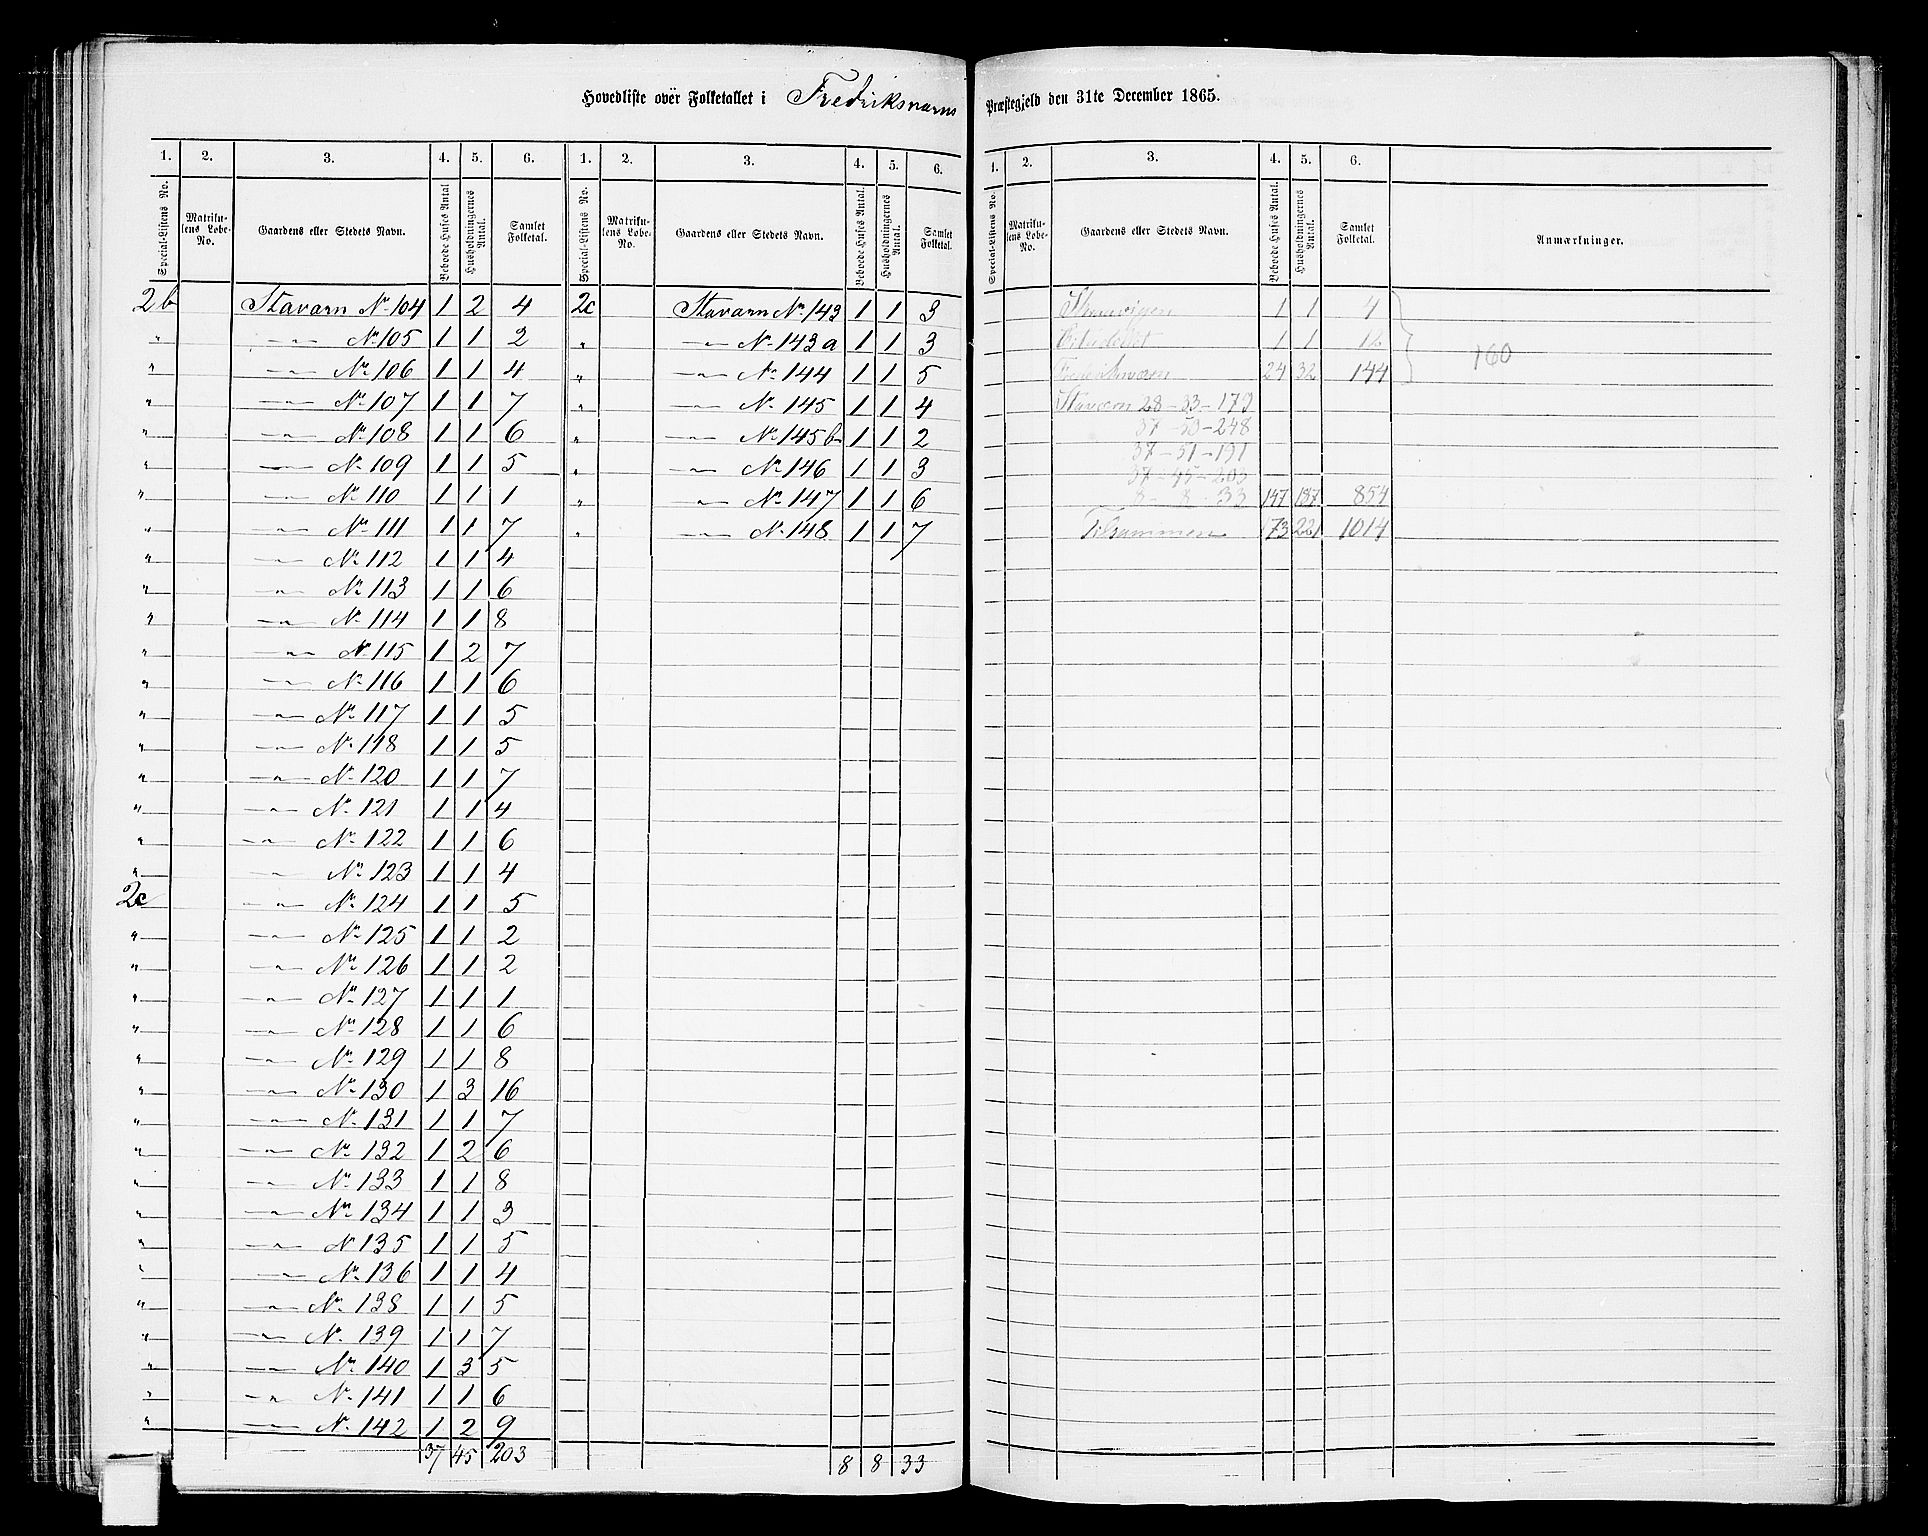 Hovedliste over Folketallet i Fredriksværns Præstegjeld den 31te December 1865.
1. 2. 3. 4. 5. 6. 1. 2. 3. 4. 5. 6.
Special-Listens No. Matrikulens Løbe-No. Gaardens eller Stedets Navn. Beboede Huses Antal. Husholdningernes Antal. Samlet Folketal. Special-Listens No. Matrikulens Løbe-No. Gaardens eller Stedets Navn. Beboede Huses Antal. Husholdningernes Antal. Samlet Folketal.
2b Staværn No 104 1 2 4
" — " — No 105 1 1 2
" — " — No 106 1 1 4
" — " — No 107 1 1 7
" — " — No 108 1 1 6
" — " — No 109 1 1 5
" — " — No 110 1 1 1
" — " — No 111 1 1 7
" — " — No 112 1 1 4
" — " — No 113 1 1 6
" — " — No 114 1 1 8
" — " — No 115 1 2 7
" — " — No 116 1 1 6
" — " — No 117 1 1 5
" — " — No 118 1 1 5
" — " — No 120 1 1 7
" — " — No 121 1 1 4
" — " — No 122 1 1 6
" — " — No 123 1 1 4
2c — " — No 124 1 1 5
" — " — No 125 1 1 2
" — " — No 126 1 1 2
" — " — No 127 1 1 1
" — " — No 128 1 1 6
" — " — No 129 1 1 8
" — " — No 130 1 3 16
" — " — No 131 1 1 7
" — " — No 132 1 2 6
" — " — No 133 1 1 8
" — " — No 134 1 1 3
" — " — No 135 1 1 5
" — " — No 136 1 1 4
" — " — No 138 1 1 5
" — " — No 139 1 1 7
" — " — No 140 1 3 5
" — " — No 141 1 1 6
" — " — No 142 1 2 9
37 45 203
2c Staværn No 143 1 1 3
" — " — No 143a 1 1 3
" — " — No 144 1 1 5
" — " — No 145 1 1 4
" — " — No 145b 1 1 2
" — " — No 146 1 1 3
" — " — No 147 1 1 6
" — " — No 148 1 1 7
8 8 33
1. 2. 3. 4. 5. 6.
Special-Listens No. Matrikulens Løbe-No. Gaardens eller Stedets Navn. Beboede Huses Antal. Husholdningernes Antal. Samlet Folketal. Anmærkninger.
1 1 4
1 1 12
24 32 144 160
Staværn 28-33-179
37-50-248
37-51-191
37-45-203
8-8-33 147 187 854
Tilsammen 173 221 1014